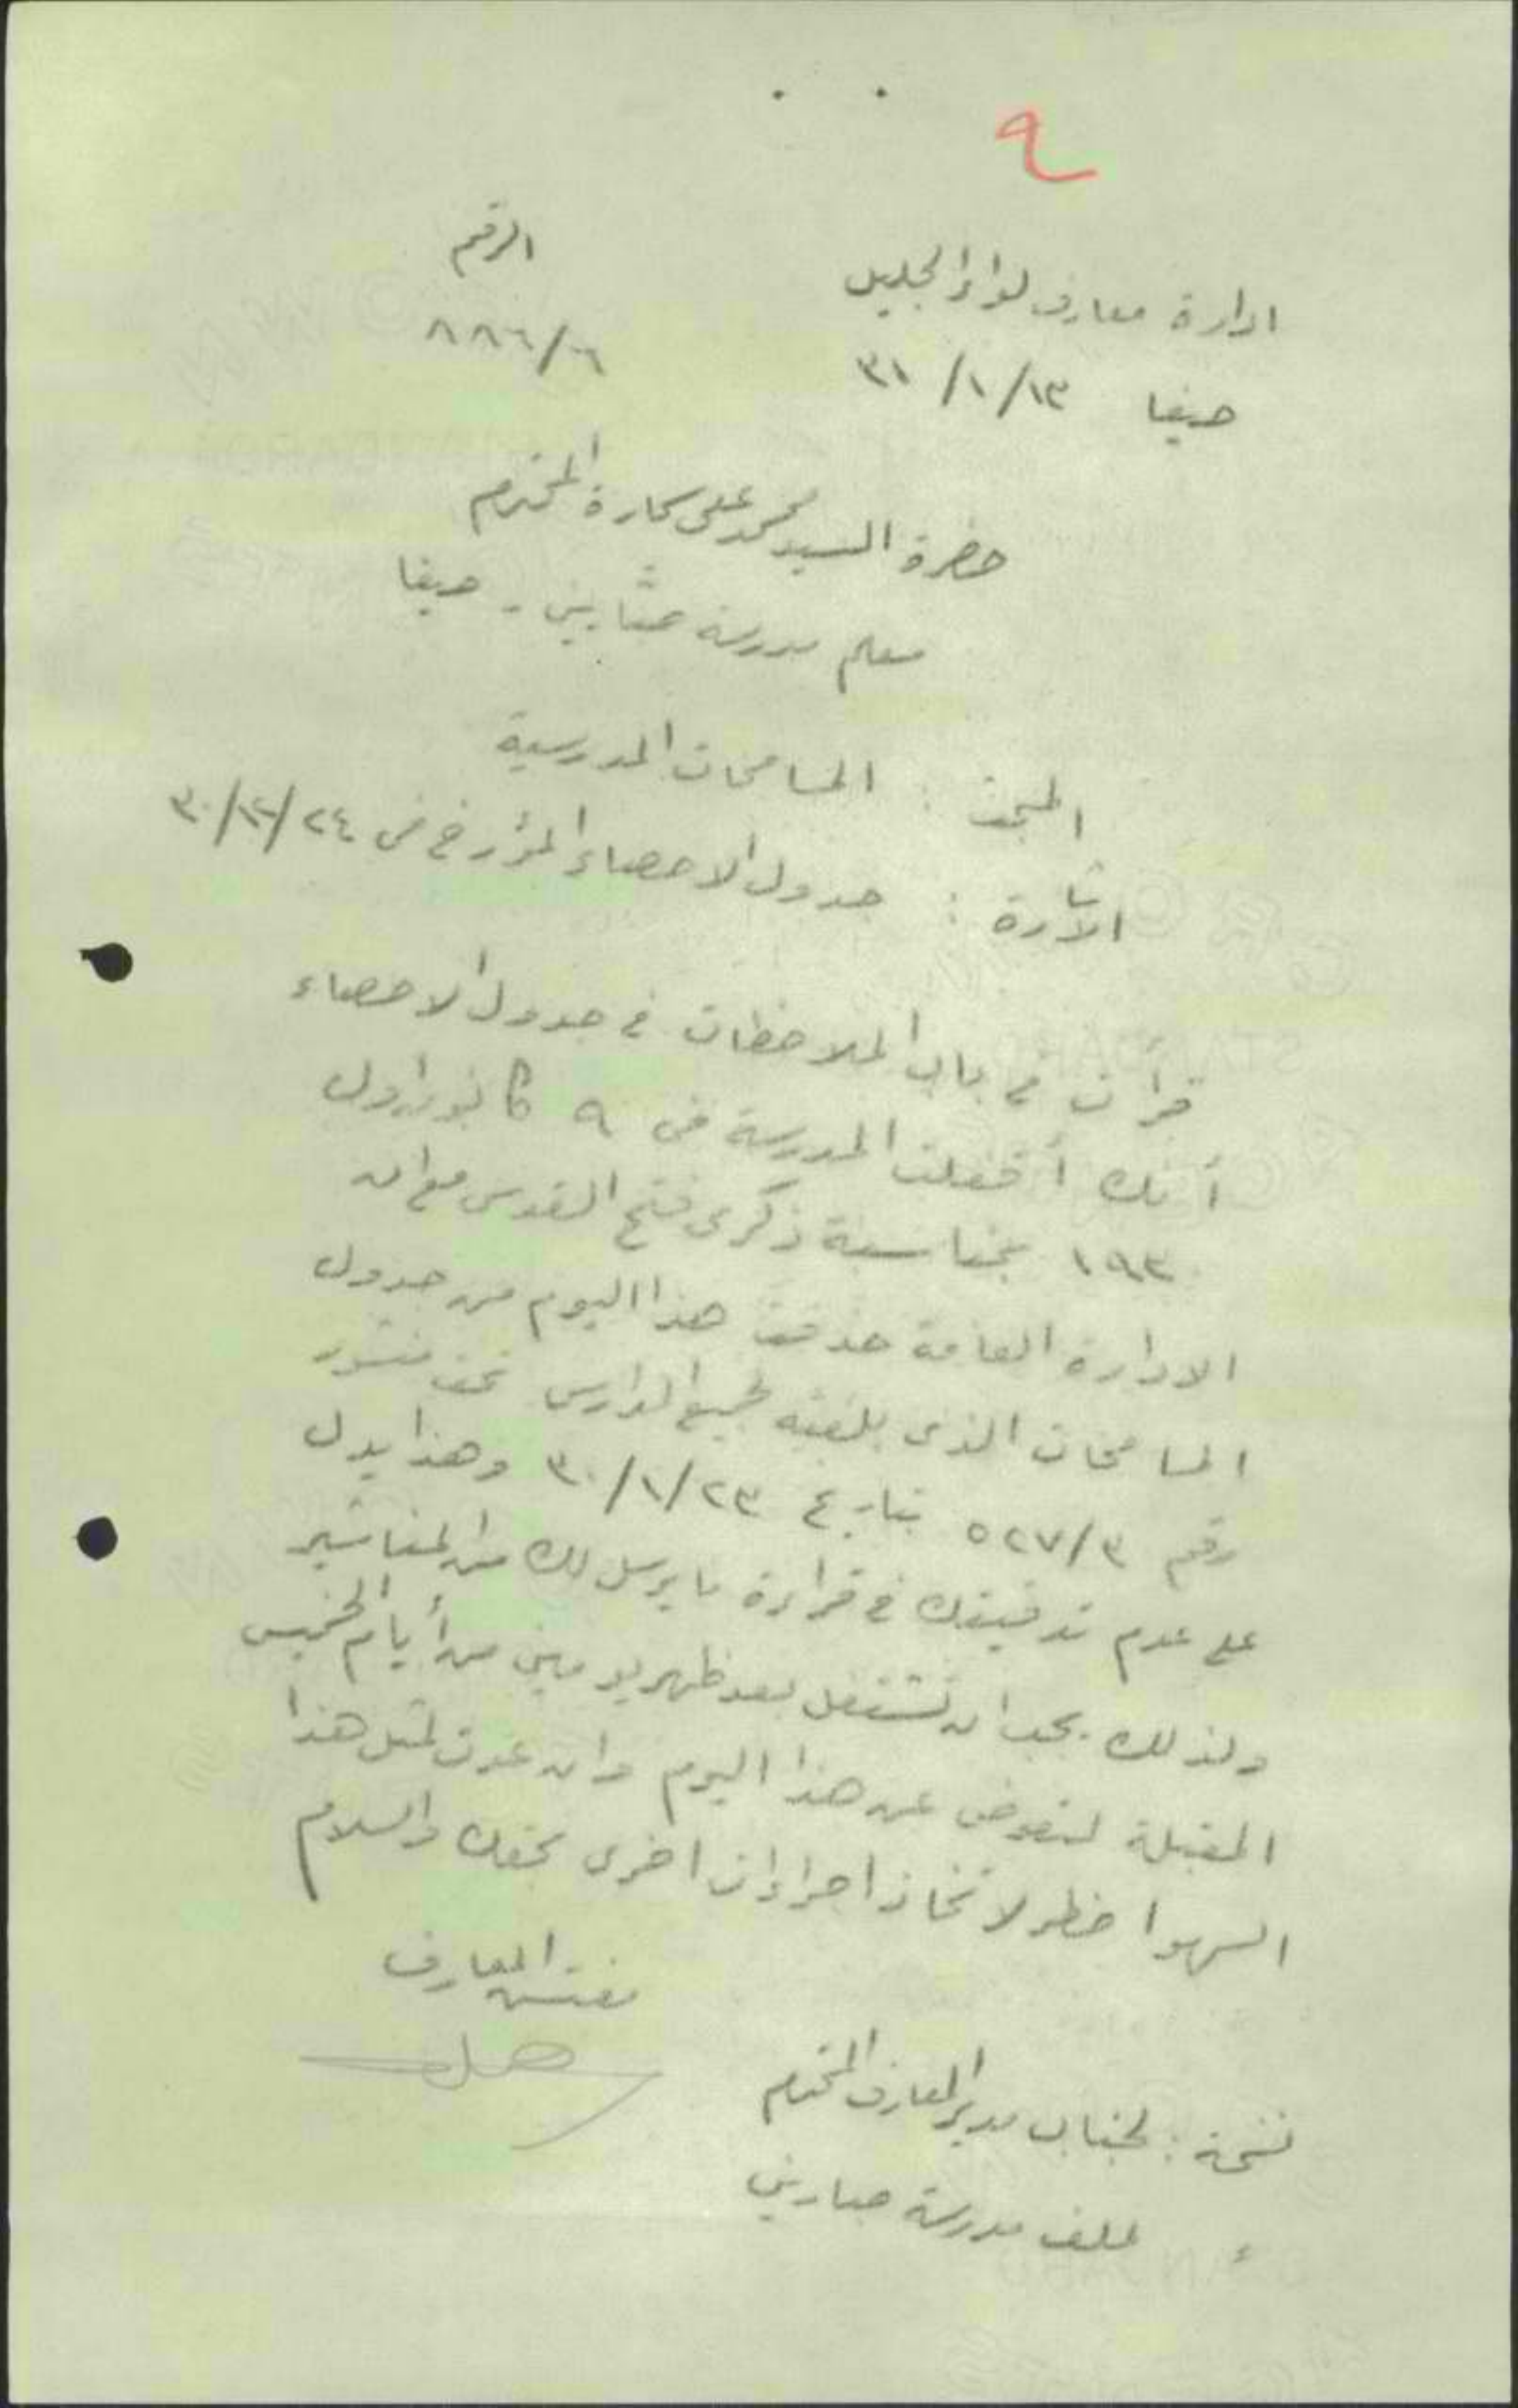 ٩
ادارة معارف لواء الجليل
الرقم
حيفا ١٣/١/٣١
٨٨٦/٦
حضرة السيد محمد علي المحترم
معلم مدرسة - حيفا
المبحث : المسامحات المدرسية
الاشارة : جدول الاحصاء المؤرخ في ٢٤/١٢/٣٠
قرأت في باب الملاحظات في جدول الاحصاء
أنك أقفلت المدرسة في ٩ كانون اول
١٩٣٠ بمناسبة ذكرى فتح القدس مع ان
الادارة العامة حذفت هذا اليوم من جدول
المسامحات الذي بلغته لجميع المدارس تحت منشور
رقم ٥٢٧/٣ بتاريخ ٢٣/١/٣٠ وهذا يدل
على عدم تدقيقك في قراءة ما يرسل لك من المناشير
ولذلك يجب ان تشتغل بعد ظهر يومين من أيام الخميس
المقبلة لتعوض عن هذا اليوم وان عدت لمثل هذا
السهو اضطر لاتخاذ اجراءات اخرى بحقك والسلام
مفتش المعارف
نسخة : لجناب مدير المعارف المحترم
لملف مدرسة صبارين